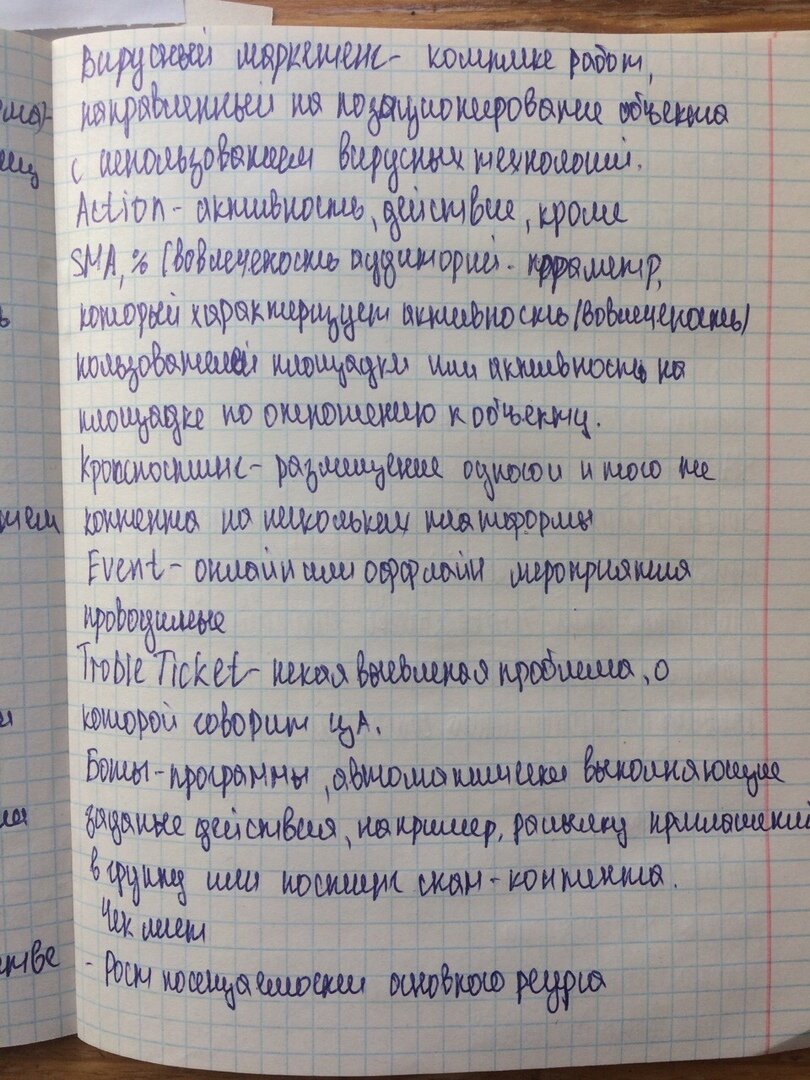 Вирусный маркетенг - комплекс работ,
направленный на позационирование объекта
с использованием вирусных технологий.
Action - активность, действие, кроме
SMA, % (вовлеченость аудиторий - параметр,
который характеризует активность (вовлеченость)
пользователей площадки или активность на
площадке по отношению к объекту.
Кросспостинг - размещение одного и того же
контента на нескольких платформы
Event - онлайн или оффлайн мероприятия
проводимые
Troble Ticket - некая выевленая проблема, о
которой говорит ЦА.
Боты - программы, автоматически выполняющие
заданые действия, например, рассылку приглашений
в группу или постинг спам-контента.
Чек лист
- Рост посещаемости основного ресурса